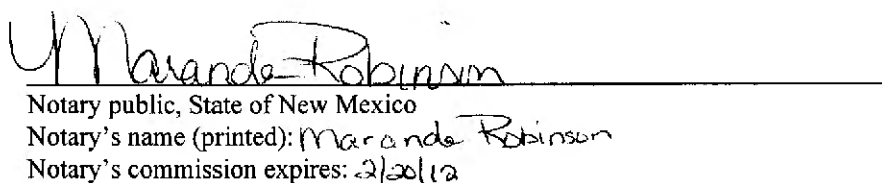 Maranda Robinson
Notary public, State of New Mexico
Notary's name (printed): Maranda Robinson
Notary's commission expires: 2/20/12